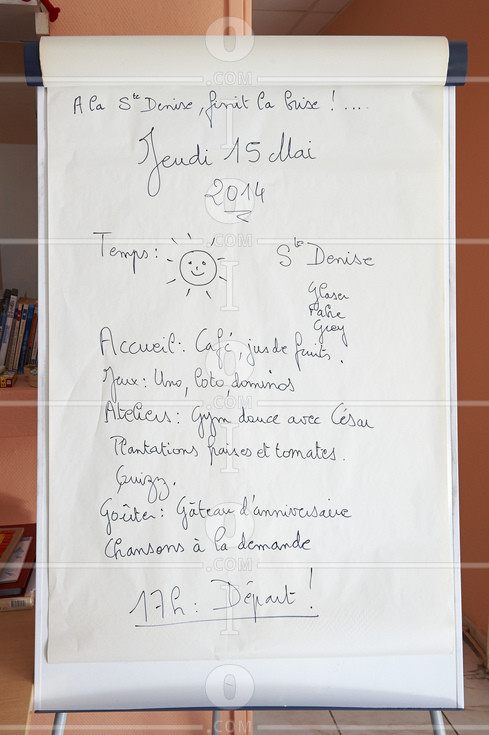 A la Ste Denise, finit la bise !....
Jeudi 15 Mai
2014
Temps :
Ste Denise
Accueil : Café, jus de fruits.
Jeux : Uno, loto, dominos
Ateliers : Gym douce avec César
Plantations fraises et tomates.
Quizz.
Goûter : Gâteau d'anniversaire
Chansons à la demande
17h : Départ !
.COM
.COM
.COM
.COM
.COM